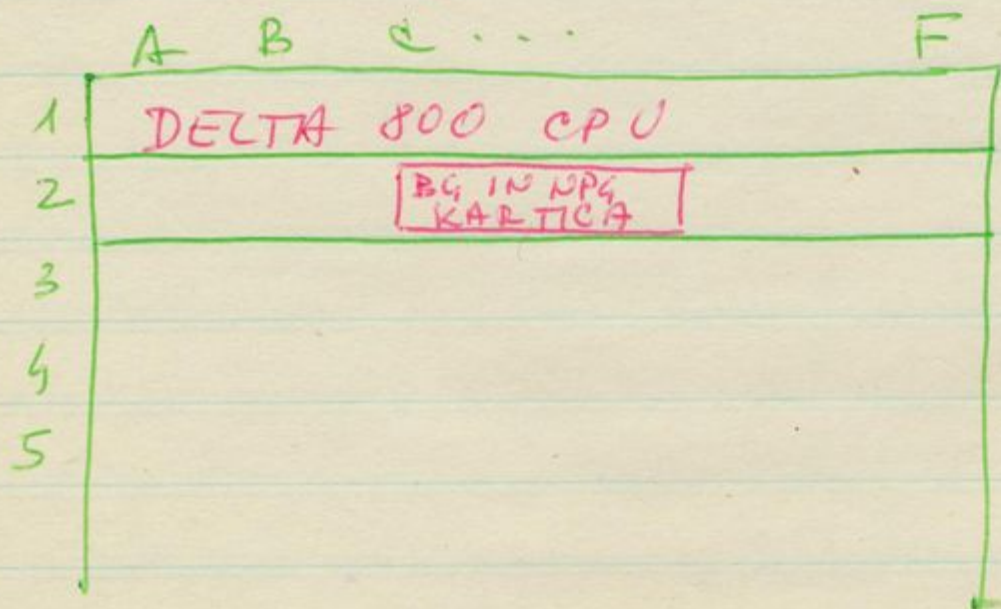 A B C . . . F
1 DELTA 800 CPU
2 BG IN NPG
KARTICA
3
4
5